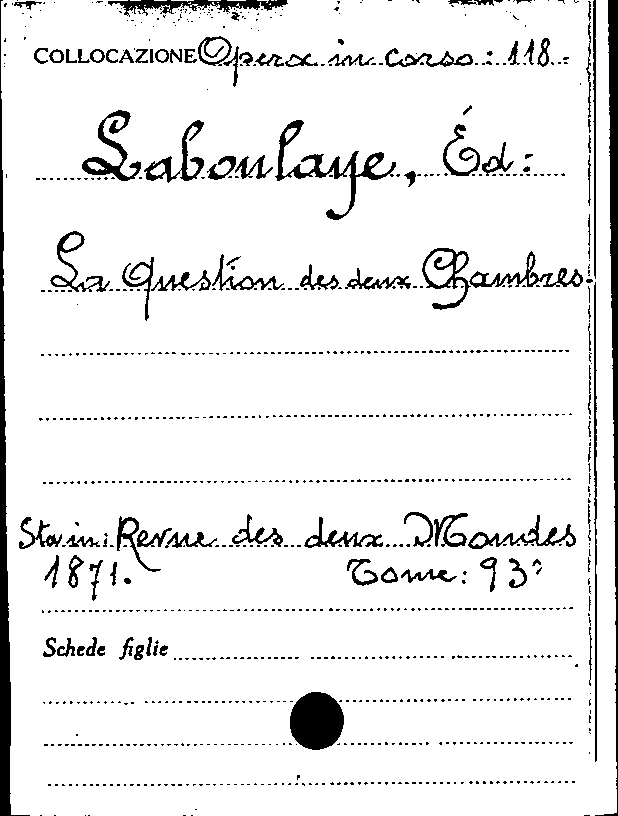 COLLOCAZIONE Opera in corso: 118.
Laboulaye, Éd:
La Question des deux Chambres.
Sta in: Revue des deux Mondes
1871. Tome: 93º
Schede figlie